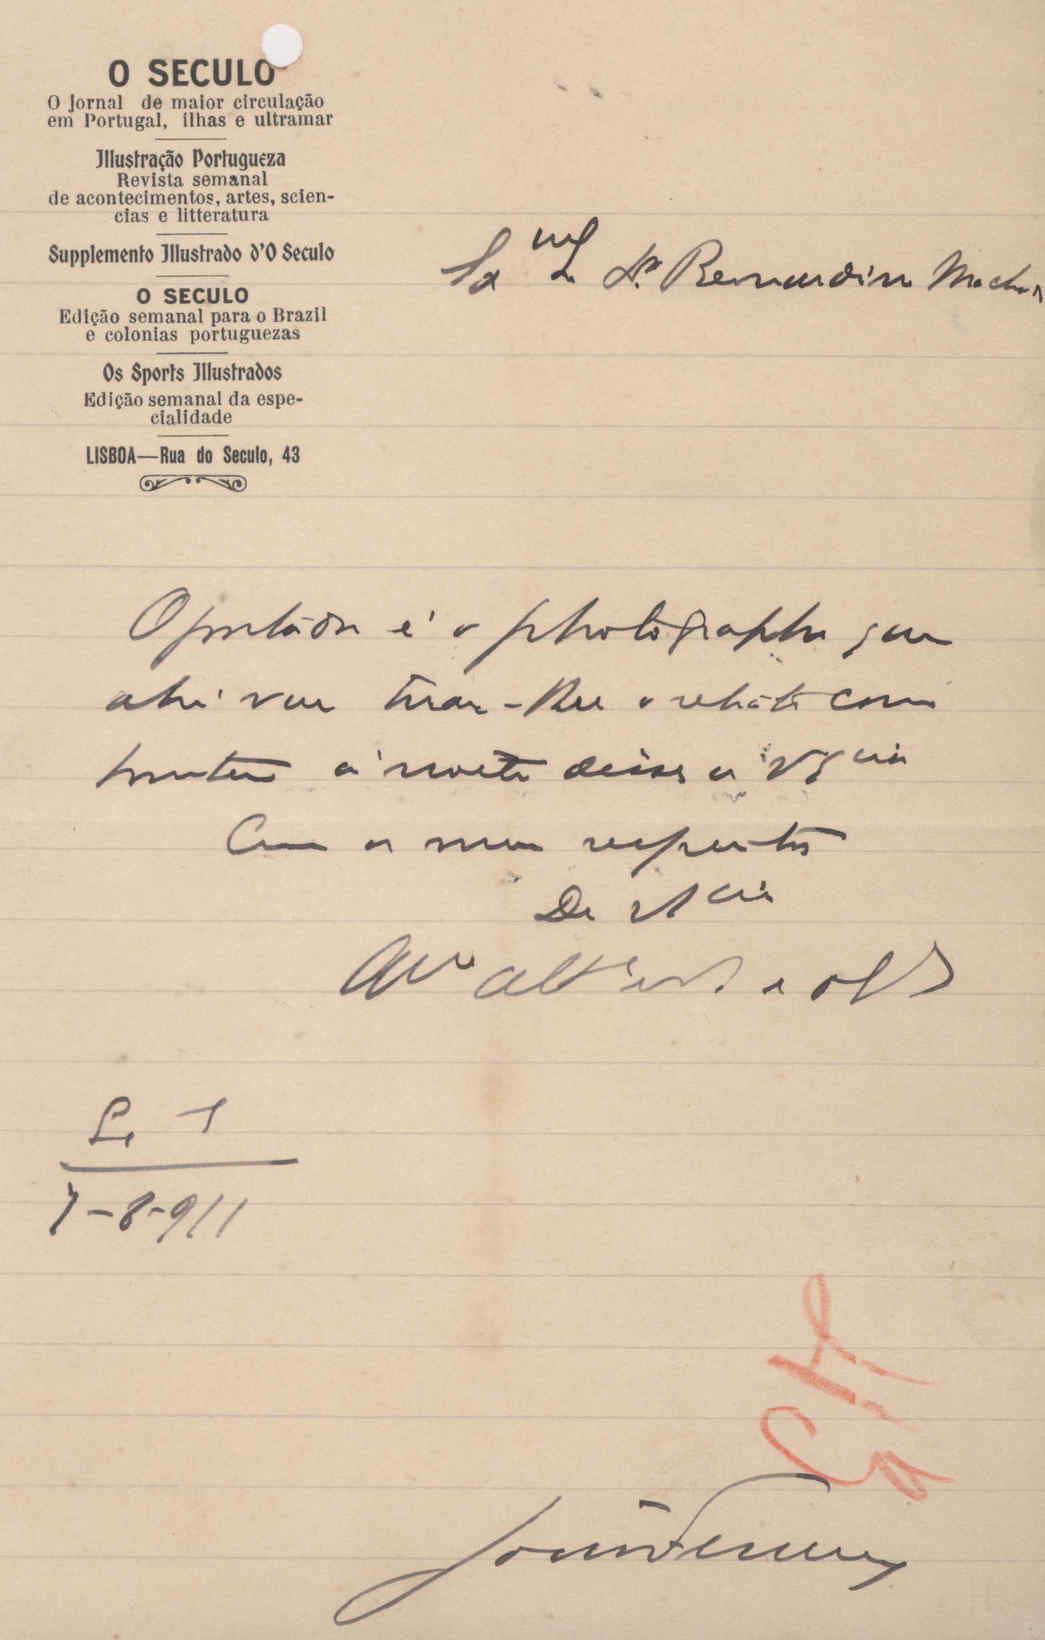 O SECULO
O Jornal de maior circulação
em Portugal, ilhas e ultramar
Illustração Portugueza
Revista semanal
de acontecimentos, artes, scien-
cias e litteratura
Supplemento Illustrado d'O Seculo
O SECULO
Edição semanal para o Brazil
e colonias portuguezas
Os Sports Illustrados
Edição semanal da espe-
cialidade
LISBOA—Rua do Seculo, 43
Ex.mo Sr. Dr. Bernardino Machado
O portador é o photographo que
ahi vae tirar-lhe o retrato como
hontem á noite disse a V. Ex.cia
Com os meus respeitos
De V. Ex.cia
S. S.
7-8-911